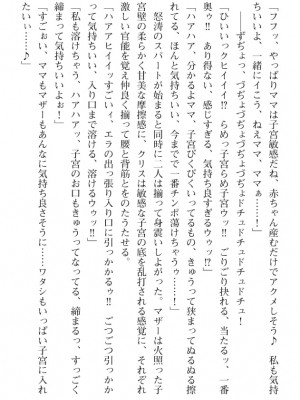 「フフッ、やっぱりママは子宮敏感だね、赤ちゃん産むだけでアクメしそう♪　私も気持
ちいいよ、一緒にイこう、ねえママ、ママぁ――！」
ずぢょっ、づぢょづぢょづぢょドチュドチュドチュドチュ！
「ひいいっクヒイイイ!?　らめっ子宮らめ子宮ウッ!!　ごりごり抉れる、当たるッ、一番
奥ゥ!!　あり得ない、感じすぎる、気持ち良すぎるウゥッ!?」
「ハアハア、分かるよママ、子宮びくびくいってるもの、きゅうって狭まってぬるぬる擦
れてる、ほんと気持ちいい、今までで一番チンポ蕩けちゃうぅ――！」
怒涛のスパートが始まると同時に二人は揃って身震いしよがった。マザーは火照った子
宮壁の柔らかく甘美な摩擦感に、クリスは敏感な子宮の底を乱打される感覚に、それぞれ
激しい官能を覚え仲良く揃って腰と背筋とをのたうたせる。
「ハアアヒイイッすごいィ、エラの出っ張り入り口に引っかかるぅ!!　ごつごつ引っかか
って気持ちいい、入り口まで溶ける、溶けるウゥッ!!」
「私も溶けちゃう、ハアハアッ、子宮のお口もきゅうってなってる、締まるっ、すっごく
締まって気持ちいいよぉ！」
「すごぉい、ママもマザーもあんなに気持ち良さそうに……ワタシもいっぱい子宮に入れ
たいい……♪」